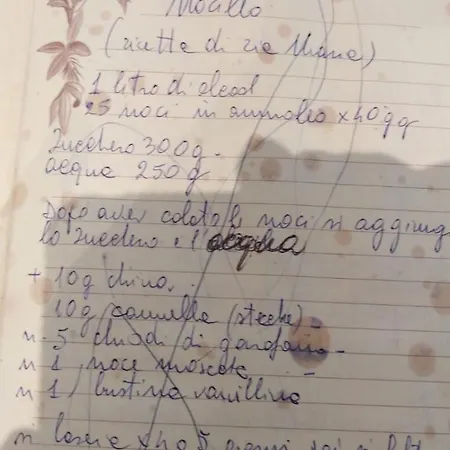 Nocillo
(ricetta di zia Uliana)
1 litro di alcool
25 noci in ammollo x 40 gg
Zucchero 300g.
acqua 250 g
Dopo aver colato le noci si aggiung
lo zucchero e l'acqua
+ 10g china.
10g cannella (stecche)
n. 5 chiodi di garofano
n 1 noce moscata
n 1 bustina vanillina
si lascia x 4 o 5 giorni poi si